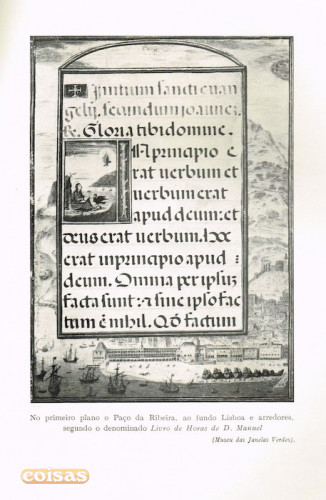 Initium sancti euan
gelij. secundum joannez.
℟. Gloria tibi domine.
In principio e
rat verbum et
verbum erat
apud deum: et
deus erat verbum. Hoc
erat in principio apud
deum. Omnia per ipsuz
facta sunt: ⁊ sine ipso fac
tum ē nihil. Qď factum
No primeiro plano o Paço da Ribeira, ao fundo Lisboa e arredores,
segundo o denominado Livro de Horas de D. Manuel
(Museu das Janelas Verdes).
coisas